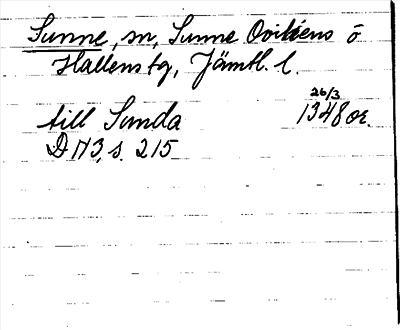 Sunne, sn, Sunne Ovikens o
Hallens tg, Jämtl. l.
till Sunda 26/3 1348 or.
D N 3, s. 215